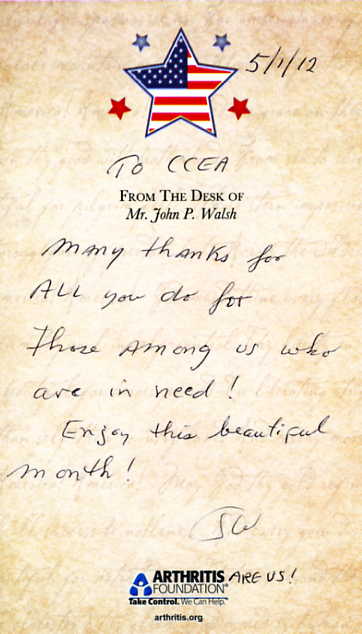 5/1/12
TO CCEA
FROM THE DESK OF
Mr. John P. Walsh
Many thanks for
ALL you do for
those among us who
are in need!
Enjoy this beautiful
month!
JW
ARTHRITIS ARE US!
FOUNDATION®
Take Control. We Can Help.™
arthritis.org